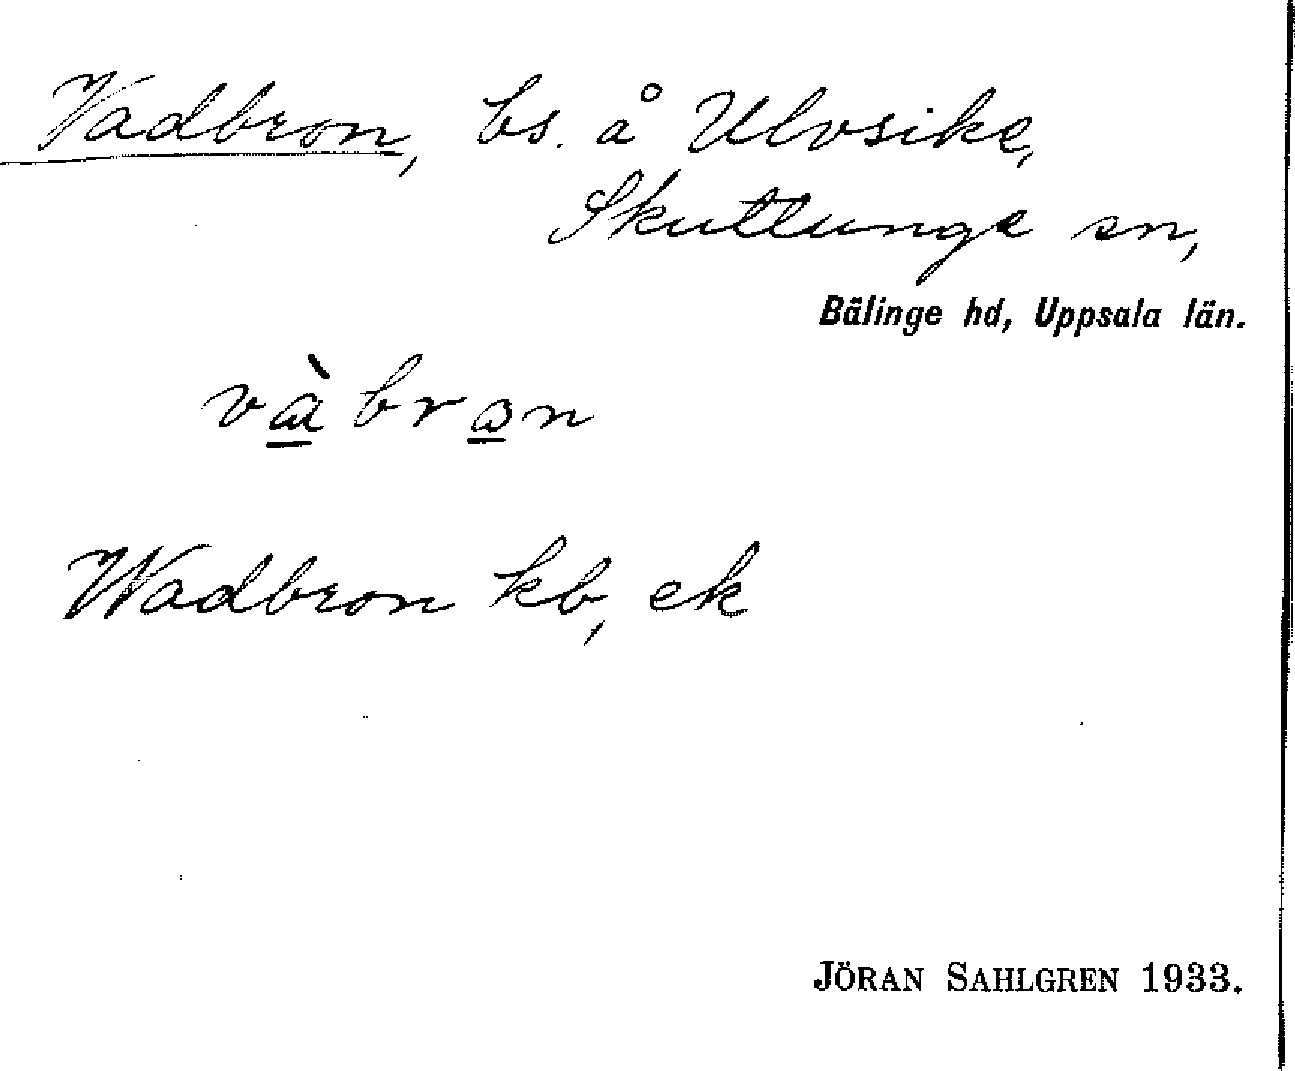 Vadbron, bs. å Ulvsike,
Skuttunge sn,
Bälinge hd, Uppsala län.
vàbron
Wadbron kb, ek
JÖRAN SAHLGREN 1933.